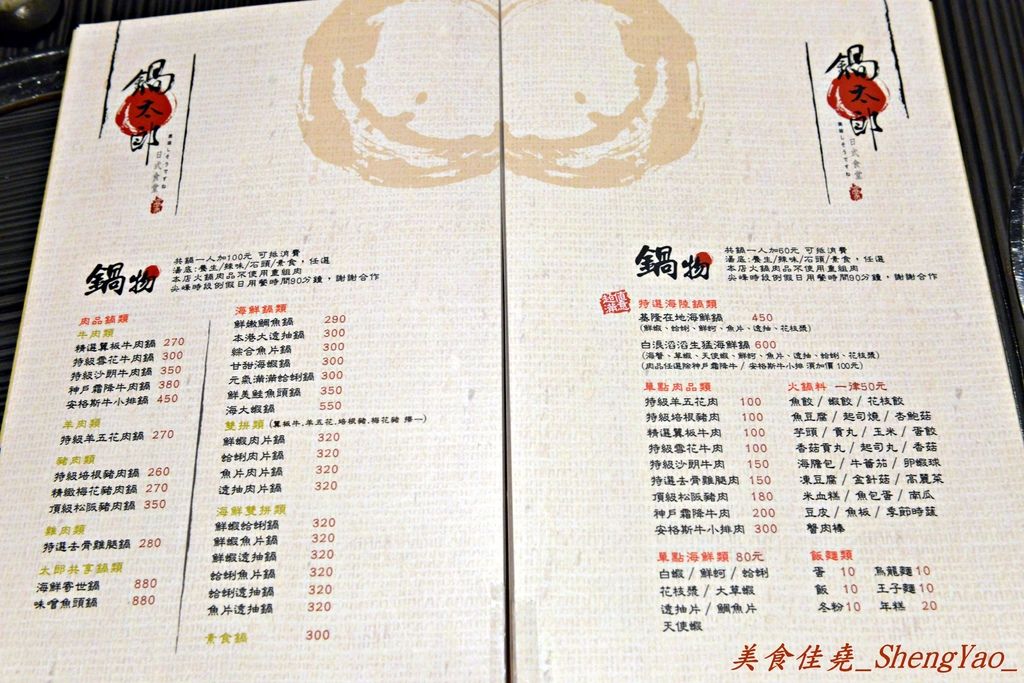 鍋太郎
日式食堂
鍋物
共鍋一人加100元 可抵消費
湯底:養生/辣味/石頭/素食，任選
本店火鍋肉品不使用重組肉
尖峰時段例假日用餐時間90分鐘，謝謝合作
肉品鍋類
牛肉類
精選翼板牛肉鍋 270
特級雪花牛肉鍋 300
特級沙朗牛肉鍋 350
神戶霜降牛肉鍋 380
安格斯牛小排鍋 450
羊肉類
特級羊五花肉鍋 270
豬肉類
特級培根豬肉鍋 260
精緻梅花豬肉鍋 270
頂級松阪豬肉鍋 350
雞肉類
特選去骨雞腿鍋 280
太郎共享鍋類
海鮮寄世鍋 880
味噌魚頭鍋 880
海鮮鍋類
鮮嫩鯛魚鍋 290
本港大透抽鍋 300
綜合魚片鍋 300
甘甜海蝦鍋 300
元氣滿滿蛤蜊鍋 300
鮮美鮭魚頭鍋 350
海大蝦鍋 550
雙拼類 (翼板牛.羊五花.培根豬.梅花豬 擇一)
鮮蝦肉片鍋 320
蛤蜊肉片鍋 320
魚片肉片鍋 320
透抽肉片鍋 320
海鮮雙拼類
鮮蝦蛤蜊鍋 320
鮮蝦魚片鍋 320
鮮蝦透抽鍋 320
蛤蜊魚片鍋 320
蛤蜊透抽鍋 320
魚片透抽鍋 320
素食鍋 300
鍋太郎
日式食堂
鍋物
共鍋一人加60元 可抵消費
湯底:養生/辣味/石頭/素食，任選
本店火鍋肉品不使用重組肉
尖峰時段例假日用餐時間90分鐘，謝謝合作
特選海陸鍋類
基隆在地海鮮鍋 450
(鮮蝦、蛤蜊、鮮蚵、魚片、透抽、花枝漿)
白浪滔滔生猛海鮮鍋 600
(海蟹、草蝦、天使蝦、鮮蚵、魚片、透抽、蛤蜊、花枝漿)
(肉品任選除神戶霜降牛/安格斯牛小排 須加價 100元)
單點肉品類
特級羊五花肉 100
特級培根豬肉 100
精選翼板牛肉 100
特級雪花牛肉 100
特級沙朗牛肉 150
特選去骨雞腿肉 150
頂級松阪豬肉 180
神戶霜降牛肉 200
安格斯牛小排肉 300
火鍋料 一律50元
魚餃/蝦餃/花枝餃
魚豆腐/起司燒/杏鮑菇
芋頭/貢丸/玉米/蛋餃
香菇貢丸/起司丸/香菇
海膽包/牛蕃茄/卵蝦球
凍豆腐/金針菇/高麗菜
米血糕/魚包蛋/南瓜
豆皮/魚板/季節時蔬
蟹肉棒
單點海鮮類 80元
白蝦/鮮蚵/蛤蜊
花枝漿/大草蝦
透抽片/鯛魚片
天使蝦
飯麵類
蛋 10 烏龍麵 10
飯 10 王子麵 10
冬粉 10 年糕 20
美食佳堯_ShengYao_